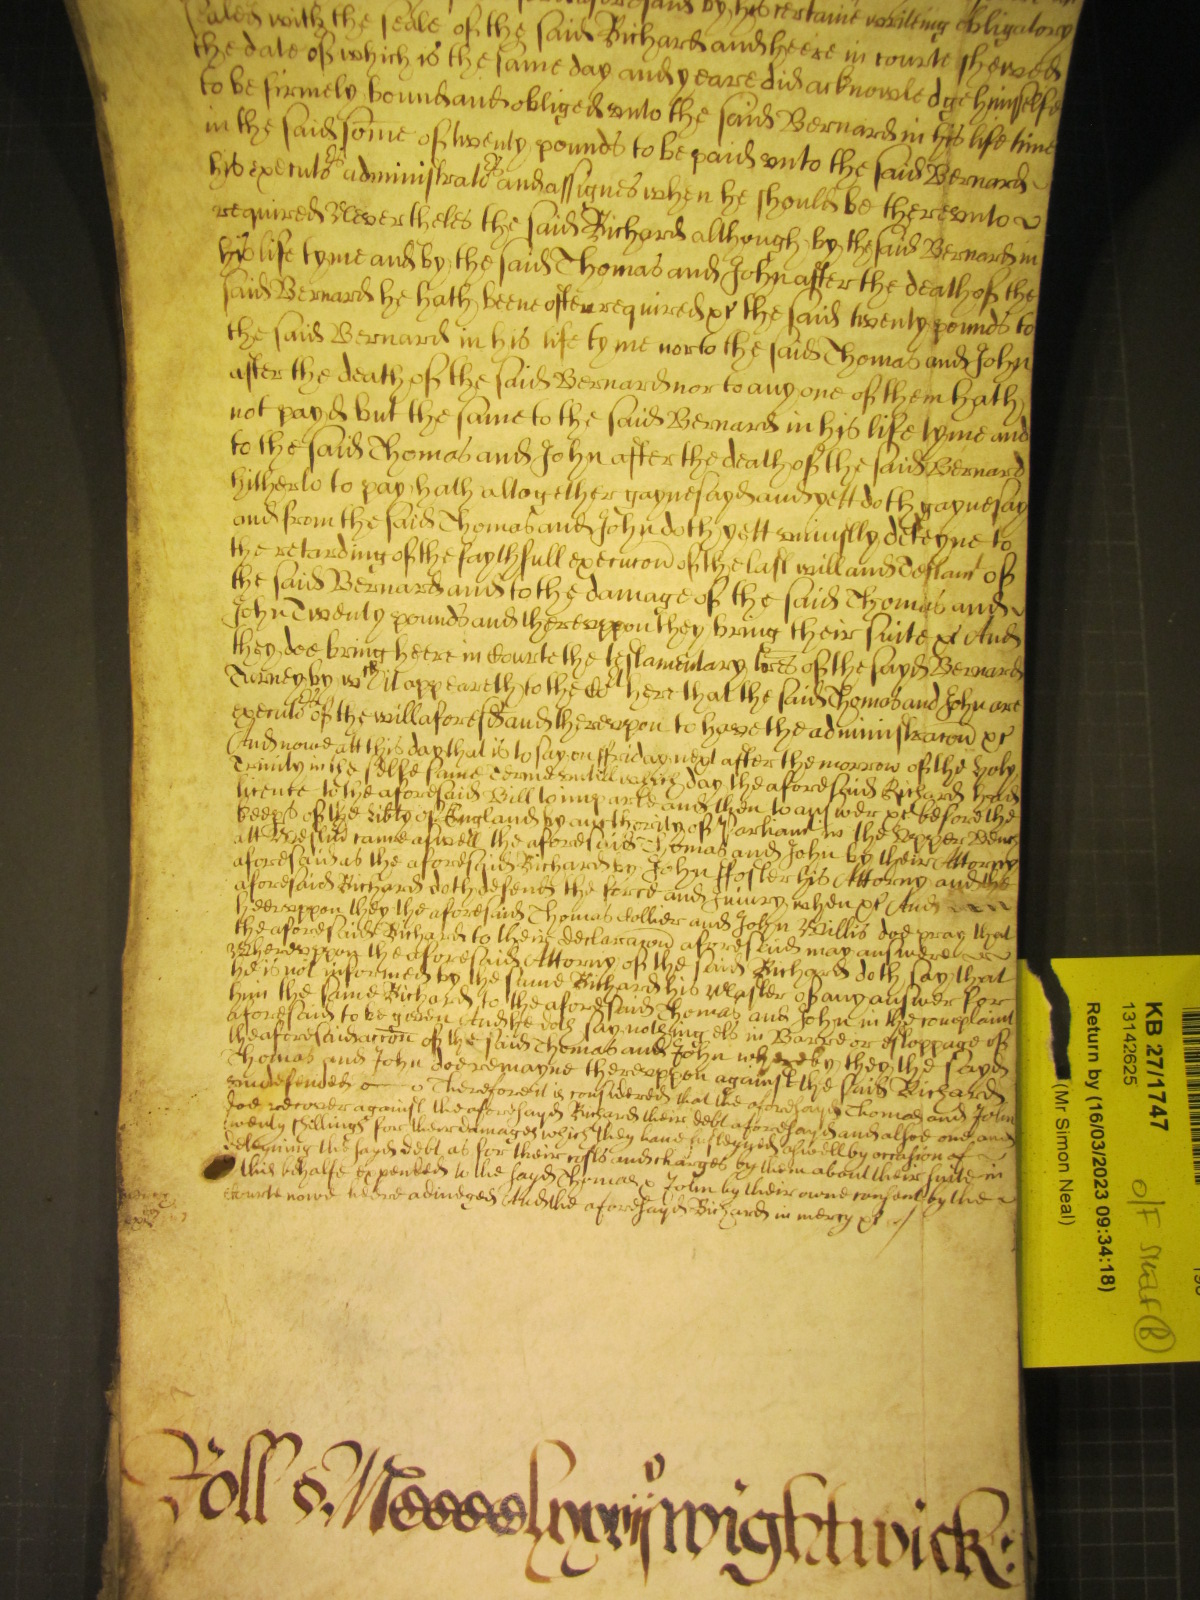 sealed with the seale of the said Richard and heere in courte shewed
the date of which is the same day and yeare did acknowledge himselfe
to be firmely bound and obliged unto the said Bernard in his life time
in the said some of twenty pounds to be paid unto the said Bernard
his executors administrators and assignes when he should be thereunto
required Nevertheles the said Richard although by the said Bernard in
his life tyme and by the said Thomas and John after the death of the
said Bernard he hath beene often required &c the said twenty pounds to
the said Bernard in his life tyme nor to the said Thomas and John
after the death of the said Bernard nor to any one of them hath
not payd but the same to the said Bernard in his life tyme and
to the said Thomas and John after the death of the said Bernard
hitherto to pay hath altogether gaynesayd and yett doth gaynesay
and from the said Thomas and John doth yett uniustly deteyne to
the retarding of the faythfull execucon of the last will and Testamt of
the said Bernard and to the damage of the said Thomas and
John Twenty pounds and thereuppon they bring their suite &c And
they doe bring heere in Courte the testamentary lres of the sayd Bernard
Turney by wch it appeareth to the Cort here that the said Thomas and John are
executors of the will aforesd and thereupon to have the administracon &c
And nowe att this day that is to say on ffriday next after the morrow of the holy
Trinity in the selfe same Terme untill which day the aforesaid Richard had
licence to the aforesaid Bill to imparle and then to answer &c before the
keeps of the Libty of England by authority of Parliamt in the Upper Bench
att Westmr came aswell the aforesaid Thomas and John by their Attorny
aforesaid as the aforesaid Richard by John ffoster his Attorny and the
aforesaid Richard doth defend the force and Iniury when &c And
heereuppon they the aforesaid Thomas Collier and John Willis doe pray that
the aforesaid Richard to their declaracon aforesaid may answere
Whereuppon the aforesaid Attorny of the said Richard doth say that
he is not informed by the same Richard his Master of any answer for
him the same Richard to the aforesaid Thomas and John in the complaint
aforesaid to be given And he doth say nothing els in Barre or estoppage of
the aforesaid accon of the said Thomas and John whereby they the sayd
Thomas and John doe remayne thereuppon against the said Richard
undefended Therefore it is considered that the aforesayd Thomas and John
doe recover against the aforesayd Richard their debt aforesayd and alsoe one and
twenty shillings for their damages which they have susteyned aswell by occasion of
deteyning the sayd debt as for their costs and charges by them about their suite in
this behalfe expended to the sayd Thomas & John by their owne consent by the
Courte nowe heere adiudged And the aforesayd Richard in mercy &c
Roll s. Mccccclxxviijo Wightwick:
KB 27/1747
13142625
Return by (16/03/2023 09:34:18)
(Mr Simon Neal)
o/F